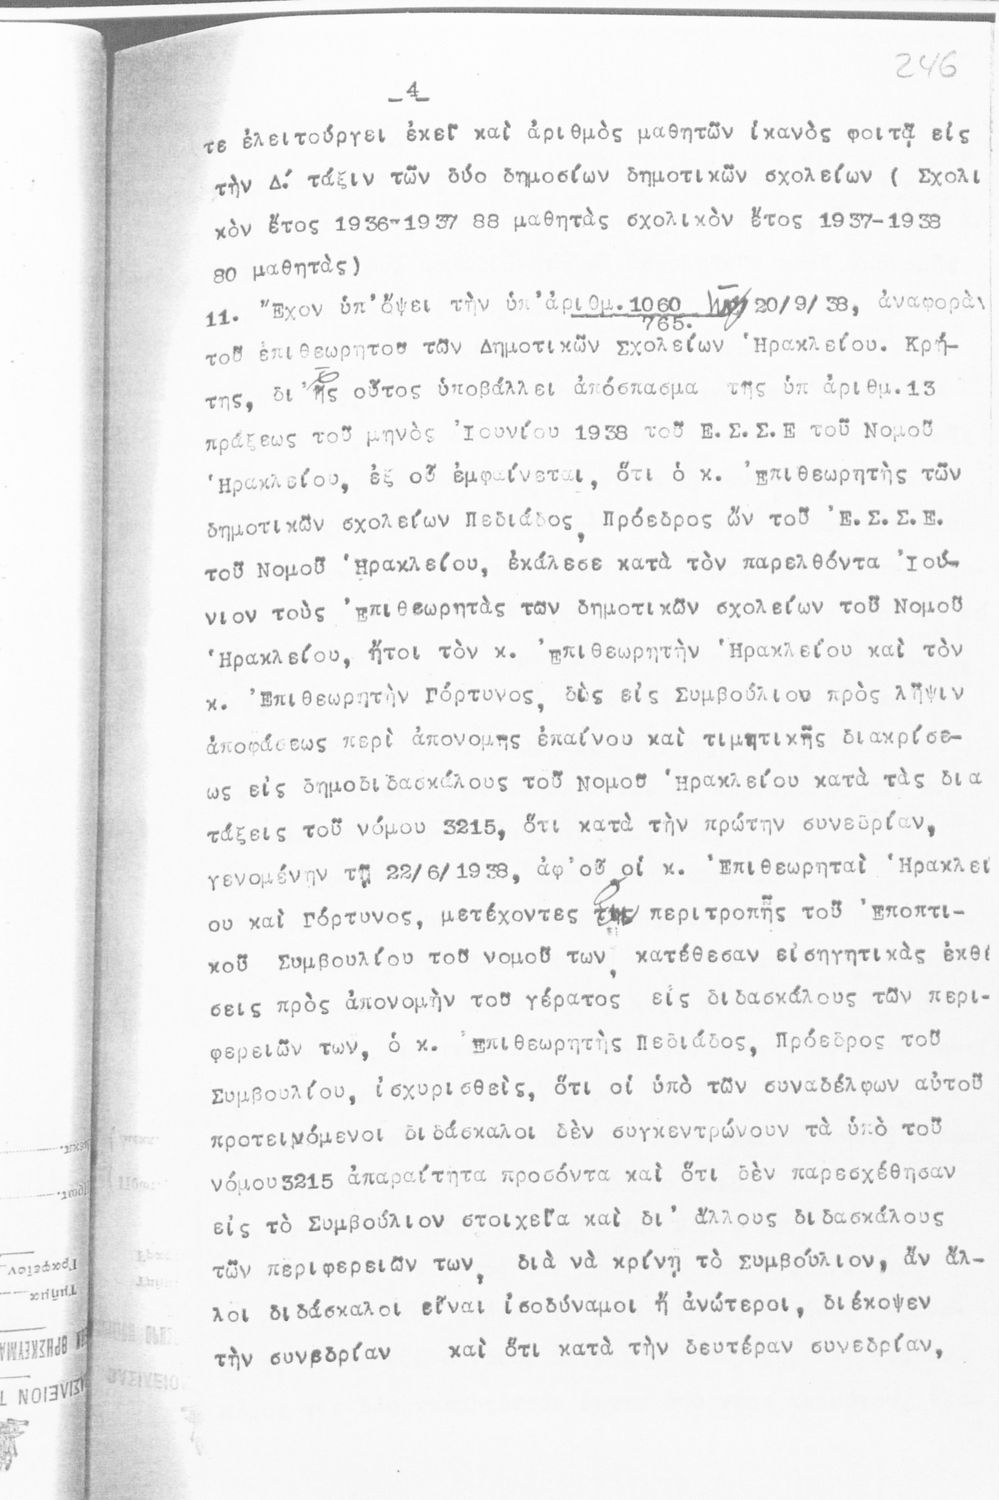 246
_4_
τε ἐλειτούργει ἐκεῖ καὶ ἀριθμὸς μαθητῶν ἱκανὸς φοιτᾷ εἰς
τὴν Δ΄. τάξιν τῶν δύο δημοσίων δημοτικῶν σχολείων ( Σχολι
κὸν ἔτος 1936-1937 88 μαθητὰς σχολικὸν ἔτος 1937-1938
80 μαθητὰς)
11. Ἔχον ὑπ'ὄψει τὴν ὑπ'ἀριθμ.1060 20/9/38, ἀναφορὰν
765.
τοῦ ἐπιθεωρητου τῶν Δημοτικῶν Σχολείων Ἡρακλείου. Κρή-
της, δι'ἧς οὗτος ὑποβάλλει ἀπόσπασμα της ὑπ ἀριθμ.13
πράξεως τοῦ μηνὸς Ἰουνίου 1938 τοῦ Ε.Σ.Σ.Ε τοῦ Νομοῦ
Ἡρακλείου, ἐξ οὗ ἐμφαίνεται, ὅτι ὁ κ. Ἐπιθεωρητὴς τῶν
δημοτικῶν σχολείων Πεδιάδος, Πρόεδρος ὢν τοῦ Ἐ.Σ.Σ.Ε.
τοῦ Νομοῦ Ἡρακλείου, ἐκάλεσε κατὰ τὸν παρελθόντα Ἰού-
νιον τοὺς Ἐπιθεωρητὰς των δημοτικῶν σχολείων τοῦ Νομοῦ
Ἡρακλείου, ἤτοι τὸν κ. Ἐπιθεωρητὴν Ἡρακλείου καὶ τὸν
κ. Ἐπιθεωρητὴν Γόρτυνος, δὺς εἰς Συμβούλιον πρὸς λῆψιν
ἀποφάσεως περὶ ἀπονομης ἐπαίνου καὶ τιμητικῆς διακρίσε-
ως εἰς δημοδιδασκάλους τοῦ Νομου Ἡρακλείου κατὰ τὰς δια
τάξεις τοῦ νόμου 3215, ὅτι κατὰ τὴν πρώτην συνεδρίαν,
γενομένην τῇ 22/6/1938, ἀφ'οὗ οἱ κ. Ἐπιθεωρηταὶ Ἡρακλεί
ου καὶ Γόρτυνος, μετέχοντες της περιτροπῆς τοῦ Ἐποπτι-
κοῦ Συμβουλίου τοῦ νομοῦ των, κατέθεσαν εἰσηγητικὰς ἐκθέ
σεις πρὸς ἀπονομὴν του γέρατος εἰς διδασκάλους τῶν περι-
φερειῶν των, ὁ κ. Ἐπιθεωρητὴς Πεδιάδος, Πρόεδρος τοῦ
Συμβουλίου, ἰσχυρισθεὶς, ὅτι οἱ ὑπὸ τῶν συναδέλφων αὐτοῦ
προτεινόμενοι διδάσκαλοι δὲν συγκεντρώνουν τὰ ὑπὸ τοῦ
νόμου3215 ἀπαραίτητα προσόντα καὶ ὅτι δὲν παρεσχέθησαν
εἰς τὸ Συμβούλιον στοιχεῖα καὶ δι' ἄλλους διδασκάλους
τῶν περιφερειῶν των, διὰ νὰ κρίνῃ τὸ Συμβούλιον, ἂν ἄλ-
λοι διδάσκαλοι εἶναι ἰσοδύναμοι ἢ ἀνώτεροι, διέκοψεν
τὴν συνεδρίαν καὶ ὅτι κατὰ τὴν δευτέραν συνεδρίαν,